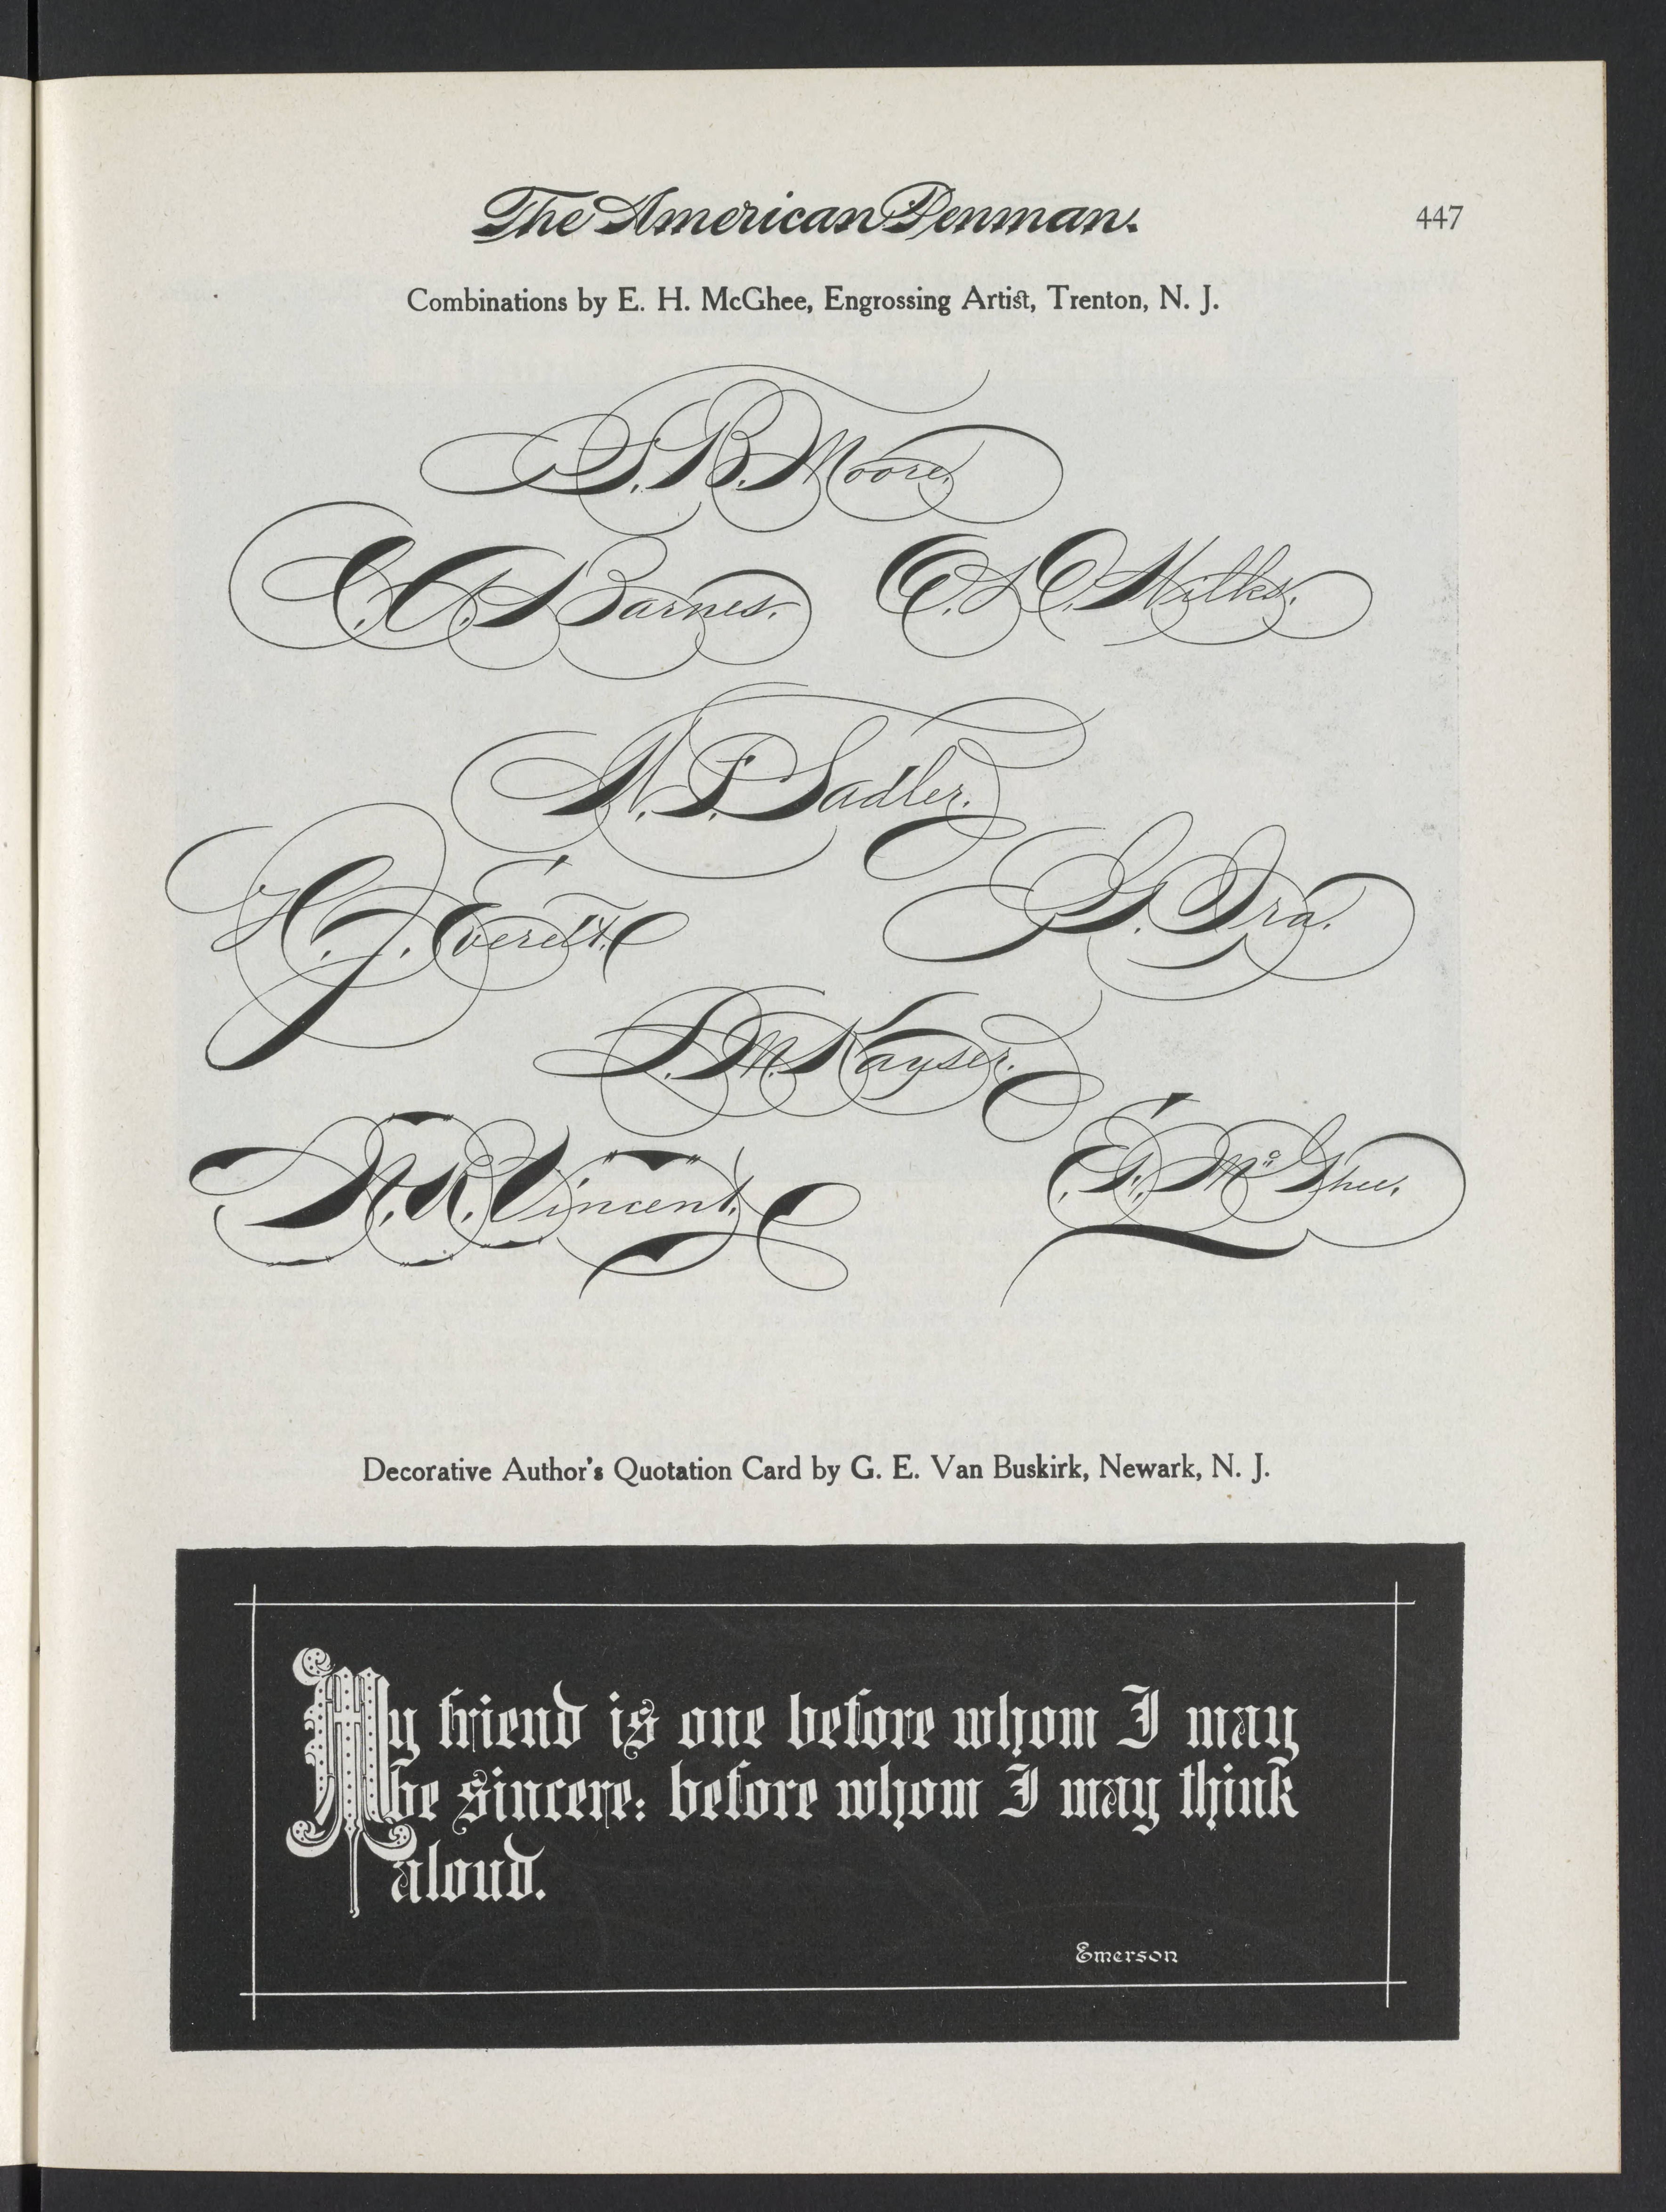 The American Penman.
447
Combinations by E. H. McGhee, Engrossing Artist, Trenton, N. J.
S. B. Moore.
Barnes.
Wilks.
Sadler.
H. J. Everett.
G. Ira.
M. Kayser.
N. R. Vincent.
E. H. McGhee.
Decorative Author's Quotation Card by G. E. Van Buskirk, Newark, N. J.
My friend is one before whom I may
be sincere: before whom I may think
aloud.
Emerson